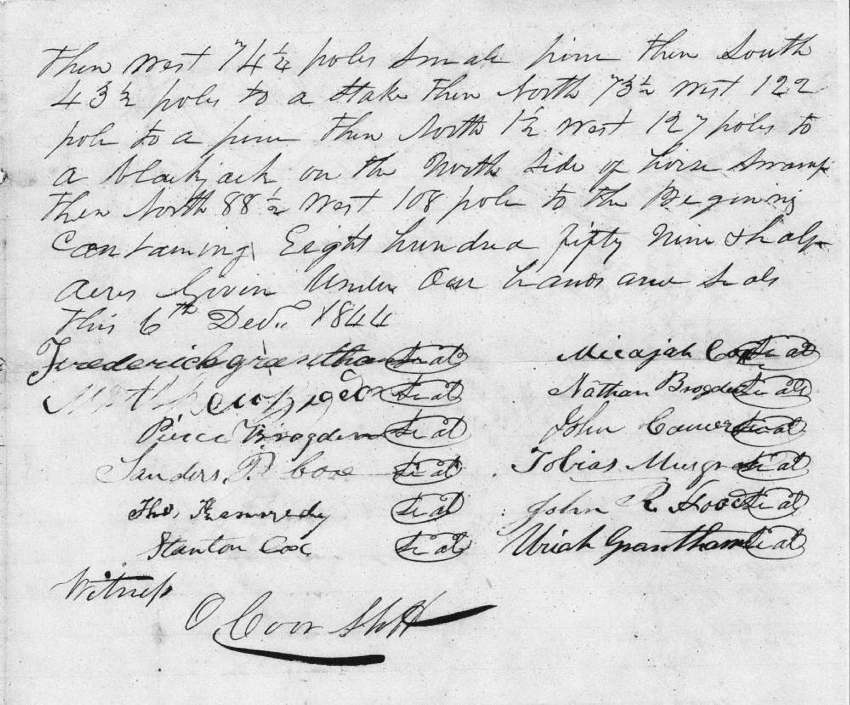 then West 74¼ poles Small pine then South
43½ poles to a Stake then North 73½ West 122
pole to a pine then North 1½ West 127 poles to
a blackjack on the North Side of horse Swamp
then North 88½ West 108 pole to the Begining
Containing Eight hundred fifty Nine & half
acres Given Under Our hands and Seals
this 6th Decr 1844
Frederick Grantham Seal
Micajah Cox Seal
Seal
Nathan Brogden Seal
Pierce Brogden Seal
John Seal
Sanders P. Cox Seal
Tobias Musgrave Seal
Thos Kennedy Seal
John R Hood Seal
Stanton Cox Seal
Uriah Grantham Seal
Witness
O Coor Shff